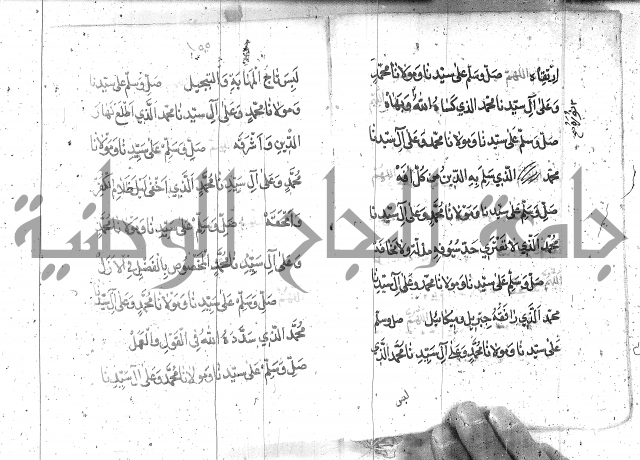 ارتفناه اللهم صل وسلم على سيدنا ومولانا محمد
وعلى آل سيدنا محمد الذي كساه الله وبهاه
صل وسلم على سيدنا ومولانا محمد وعلى آل سيدنا
محمد الذي سلم به الدين من كل آفة اللهم
صل وسلم على سيدنا ومولانا محمد وعلى آل سيدنا
محمد الذي لا
صل وسلم على سيدنا ومولانا محمد وعلى آل سيدنا
محمد الذي رافقه جبريل وميكائيل اللهم صل وسلم
على سيدنا ومولانا محمد وعلى آل سيدنا محمد الذي
لبس
١٥٥
لبس تاج المهابة والتبجيل صل وسلم على سيدنا
ومولانا محمد وعلى آل سيدنا محمد الذي اظهر بهاء
الدين واشرقه صل وسلم على سيدنا ومولانا
محمد وعلى آل سيدنا محمد الذي اخفى ليل ظلام الكفر
وامحقه صل وسلم على سيدنا ومولانا محمد
وعلى آل سيدنا محمد المخصوص بالفضل في الازل
صل وسلم على سيدنا ومولانا محمد وعلى آل سيدنا
محمد الذي سدده الله في القول والعمل
صل وسلم على سيدنا ومولانا محمد وعلى آل سيدنا
جامعة النجاح الوطنية